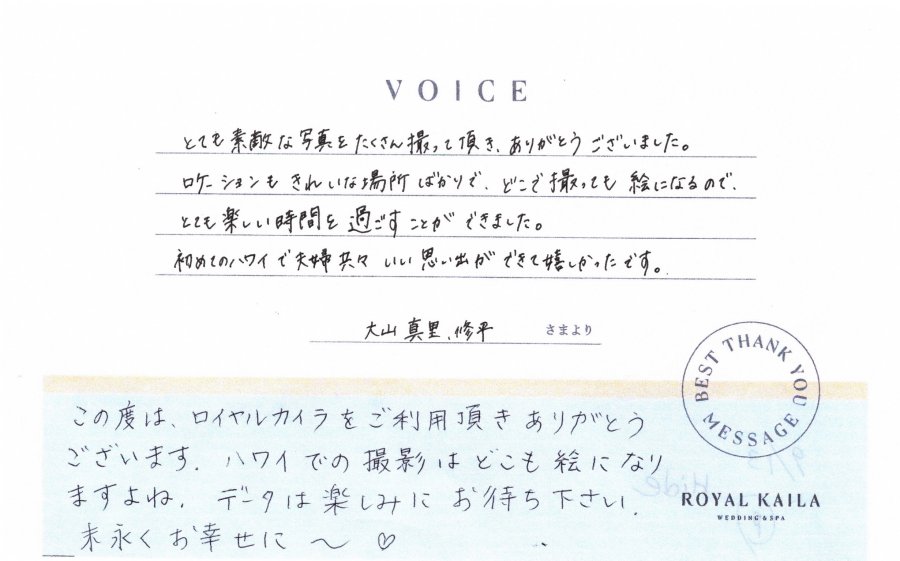 VOICE
とても素敵な写真をたくさん撮って頂き、ありがとうございました。
ロケーションもきれいな場所ばかりで、どこで撮っても絵になるので、
とても楽しい時間を過ごすことができました。
初めてのハワイで夫婦共々いい思い出ができて嬉しかったです。
大山真里、修平 さまより
BEST THANK YOU MESSAGE
この度は、ロイヤルカイラをご利用頂きありがとう
ございます。ハワイでの撮影はどこも絵になり
ますよね。データは楽しみにお待ち下さい。
末永くお幸せに〜♡
9/13
Hide
ROYAL KAILA
WEDDING & SPA